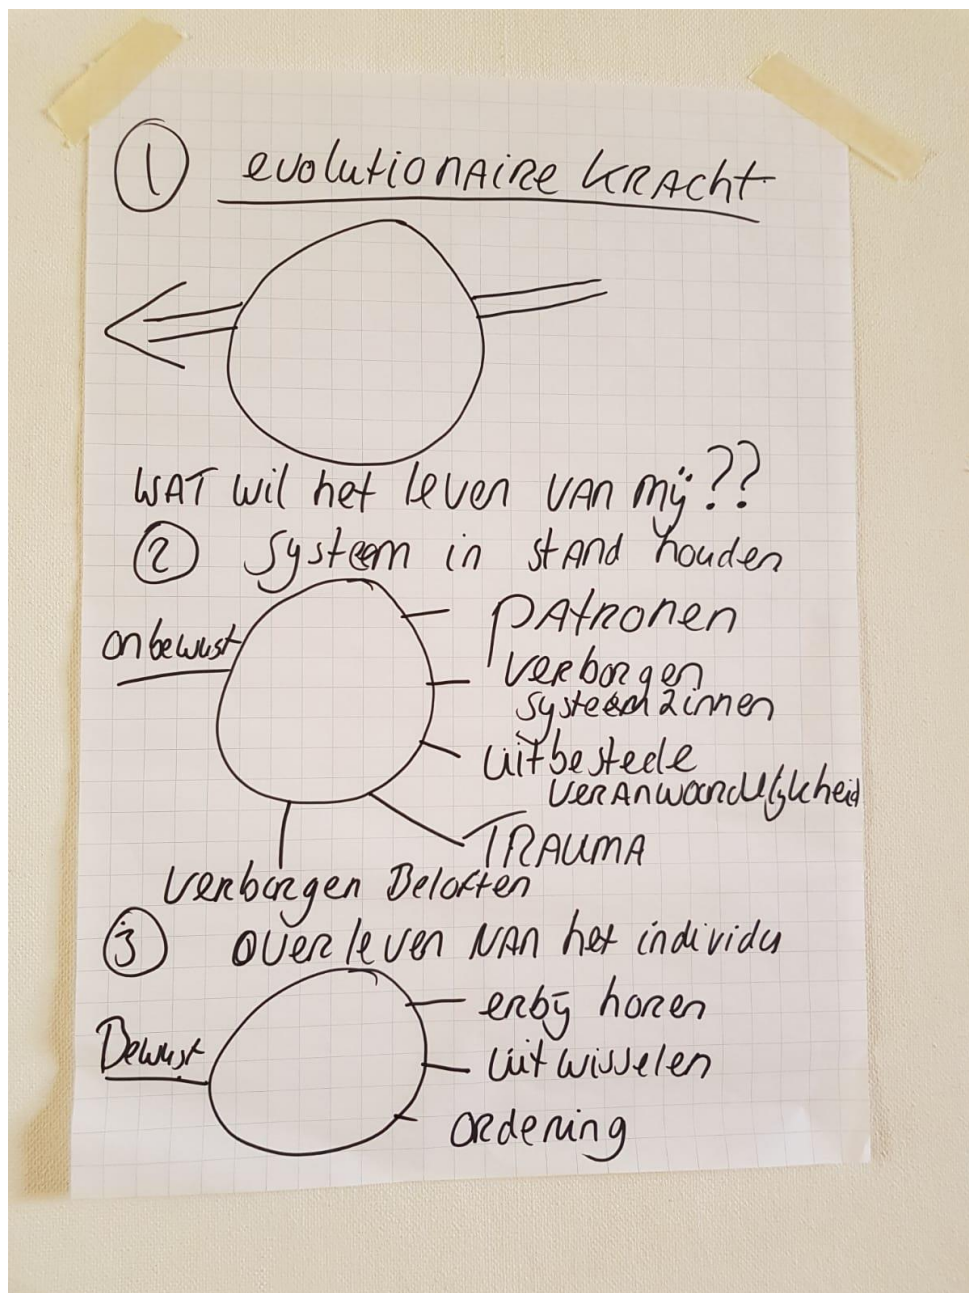 1 evolutionaire KRACht
WAT wil het leven VAN mij??
2 Systeem in stAND houden
onbewust
PAtRonen
VERborgen
systeem zinnen
Uitbestede
VERANwoordelijkheid
TRAUMA
Verborgen Beloften
3 OVERleven VAN het individu
Bewust
erbij horen
Uitwisselen
ORdening